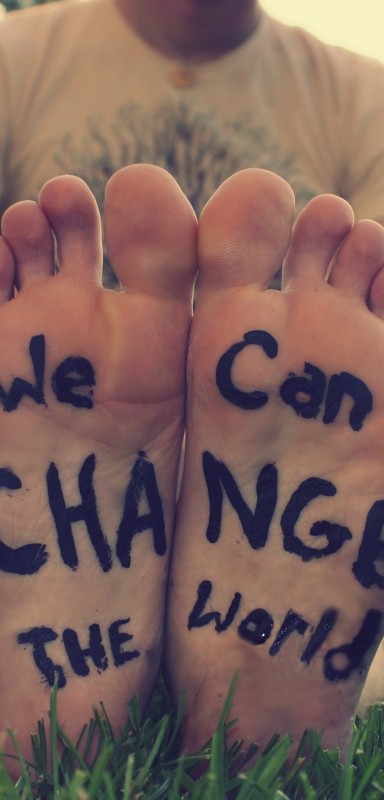 We Can
CHANGE
THE World